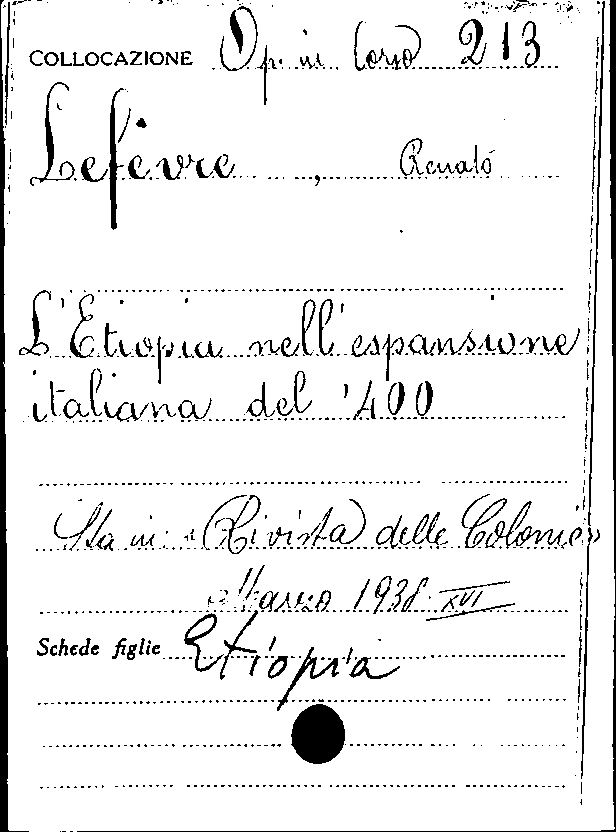 COLLOCAZIONE Op. in Corso 213
Lefèvre, Renato
L'Etiopia nell'espansione
italiana del '400
Sta in: «Rivista delle Colonie»
Marzo 1938 XVI
Schede figlie Etiopia